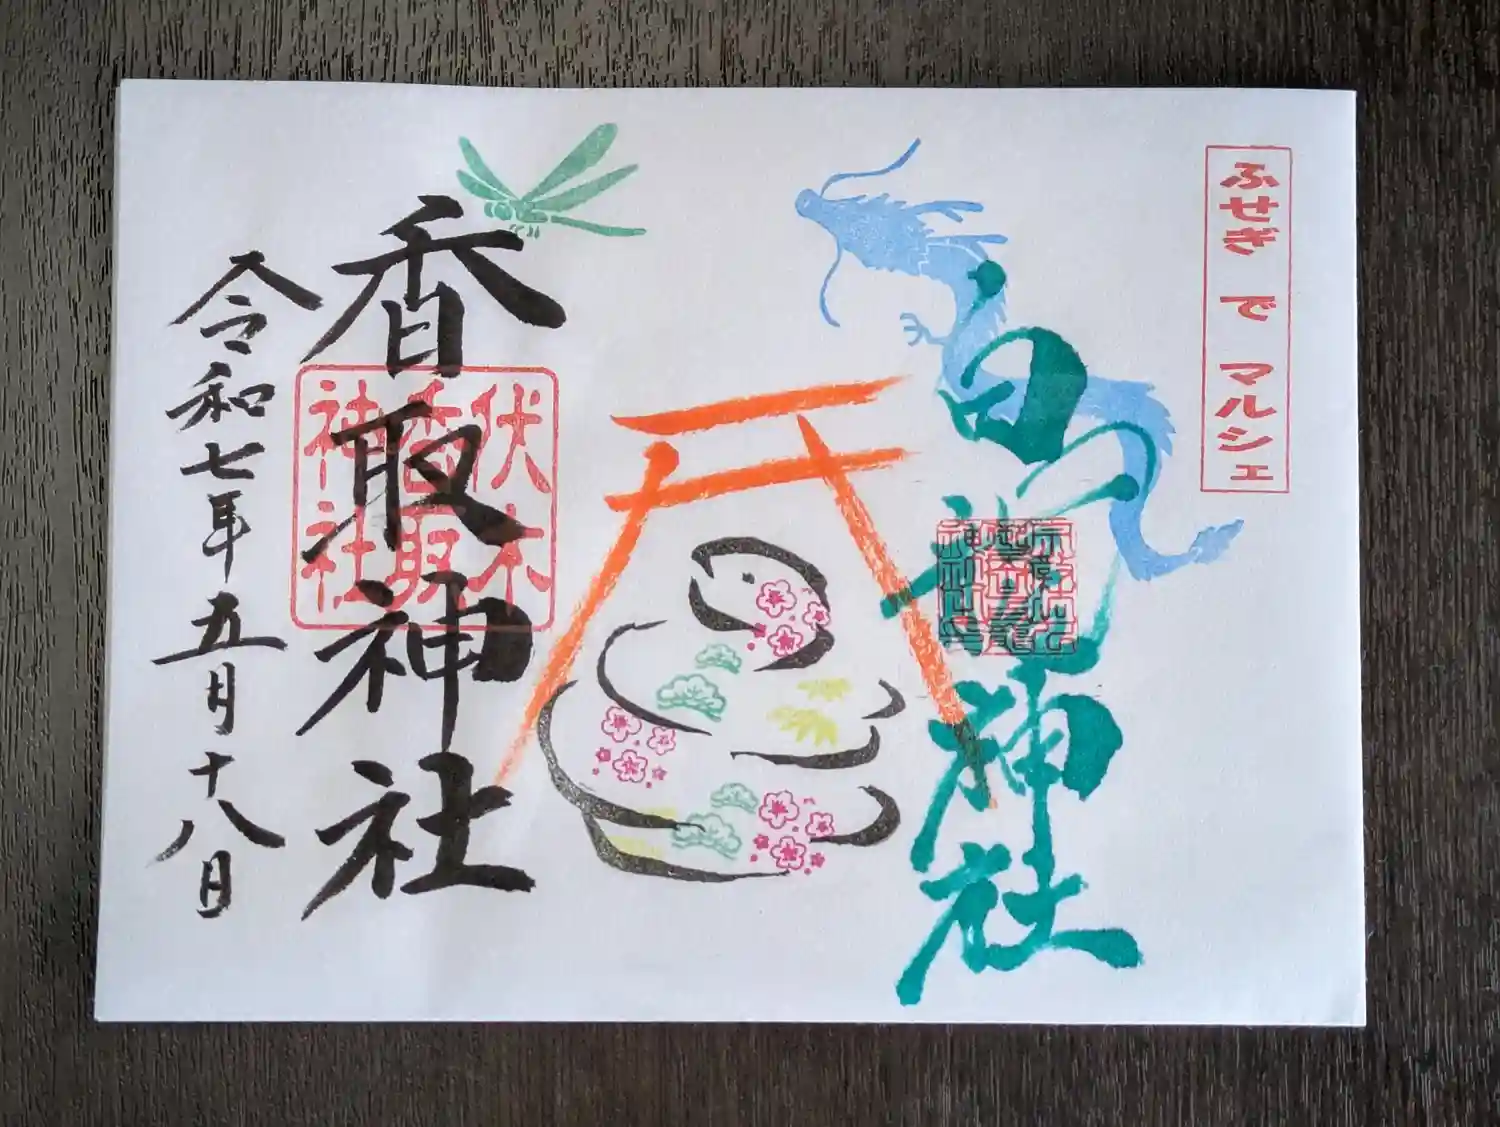 ふせぎ で マルシェ
白龍神社
香取神社
伏木
香取
神社
令和七年五月十八日